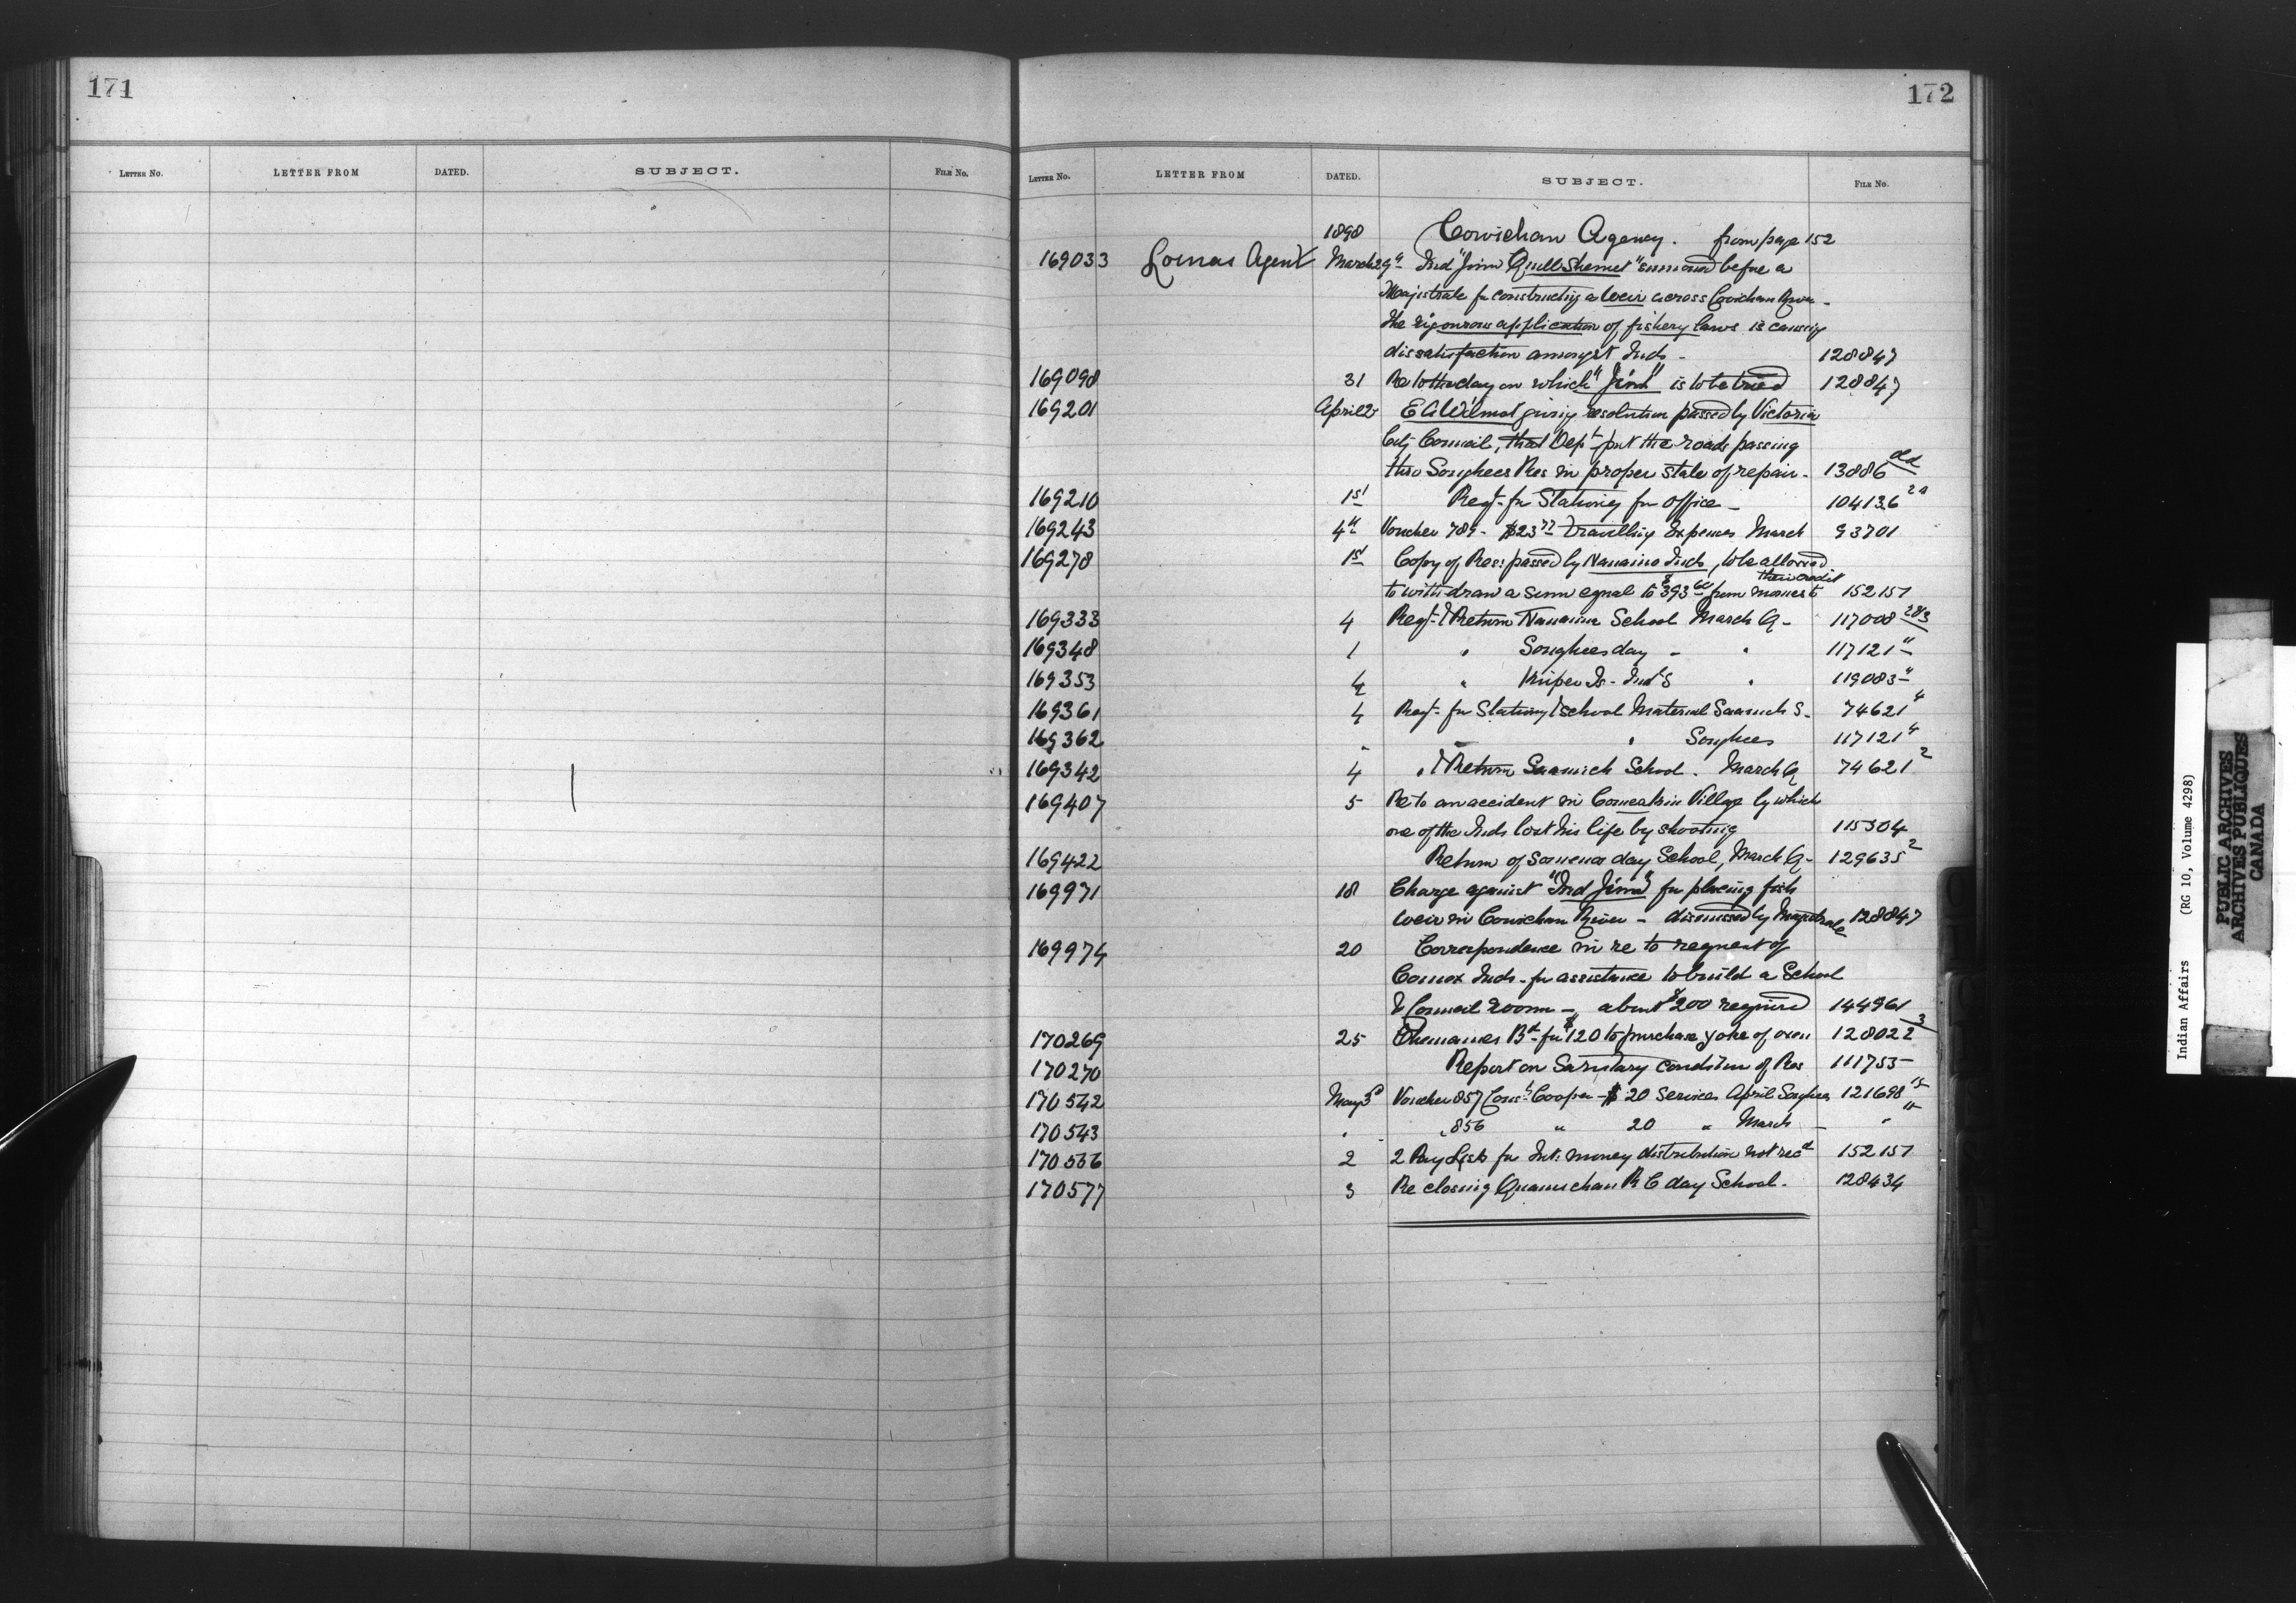 171
172
LETTER NO. LETTER FROM DATED. SUBJECT. FILE NO.
LETTER NO. LETTER FROM DATED. SUBJECT. FILE NO.
1898 Cowichan Agency. from page 152
169033 Lomas Agent March 29th Ind "Jim Quilshemet" summoned before a
Magistrate for constructing a weir across Cowichan River -
The rigourous application of fishery laws is causing
dissatisfaction amongst Inds - 128847
169098 31 Re to the day on which "Jim" is to be tried 128847
169201 April 2 E A Wilmot giving resolution passed by Victoria
City Council, that Dept put the roads passing
thro Songhees Res in proper state of repair. 13886 old
169210 1st Reqt. for Stationery for Office - 104136 2a
169243 4th Voucher 789 - $23 77 Travelling Expenses March 93701
169278 1st Copy of Res: passed by Nanaimo Inds, to be allowed
to withdraw a sum equal to $393 60 from moneys to their credit 152157
169333 4 Reqt. & Return Nanaimo School March Q - 117008
169348 1 " Songhees day - " 117121 "
169353 4 " Kuper Is - Ind S " 119083 "
169361 4 Reqt. for Stationery & school Material Saanich S. 74621 "
169362 " " Songhees 117121 "
169342 4 " & Return Saanich School. March Q 74621 2
169407 5 Re to an accident in Comeakin Village by which
one of the Inds lost his life by shooting 115304
169422 Return of Somenos day School, March Q - 129635 2
169971 18 Charge against "Ind Jim" for placing fish
weir in Cowichan River - dismissed by Magistrate 128847
169974 20 Correspondence in re to request of
Comox Inds - for assistance to build a School
& Council room - about $200 required 144961
170269 25 Chemainus Bd - for $120 to purchase yoke of oxen 128022 3
170270 Report on Sanitary condition of Res 111755
170542 May 3d Voucher 857 Const: Cooper - $20 Services April Songhees 121698 15
170543 " " 856 " 20 " March - " "
170566 2 2 Pay Lists for Int: money distribution not recd 152157
170577 3 Re closing Quamichan R C day School. 128434
Indian Affairs (RG 10, Volume 4298)
PUBLIC ARCHIVES
ARCHIVES PUBLIQUES
CANADA